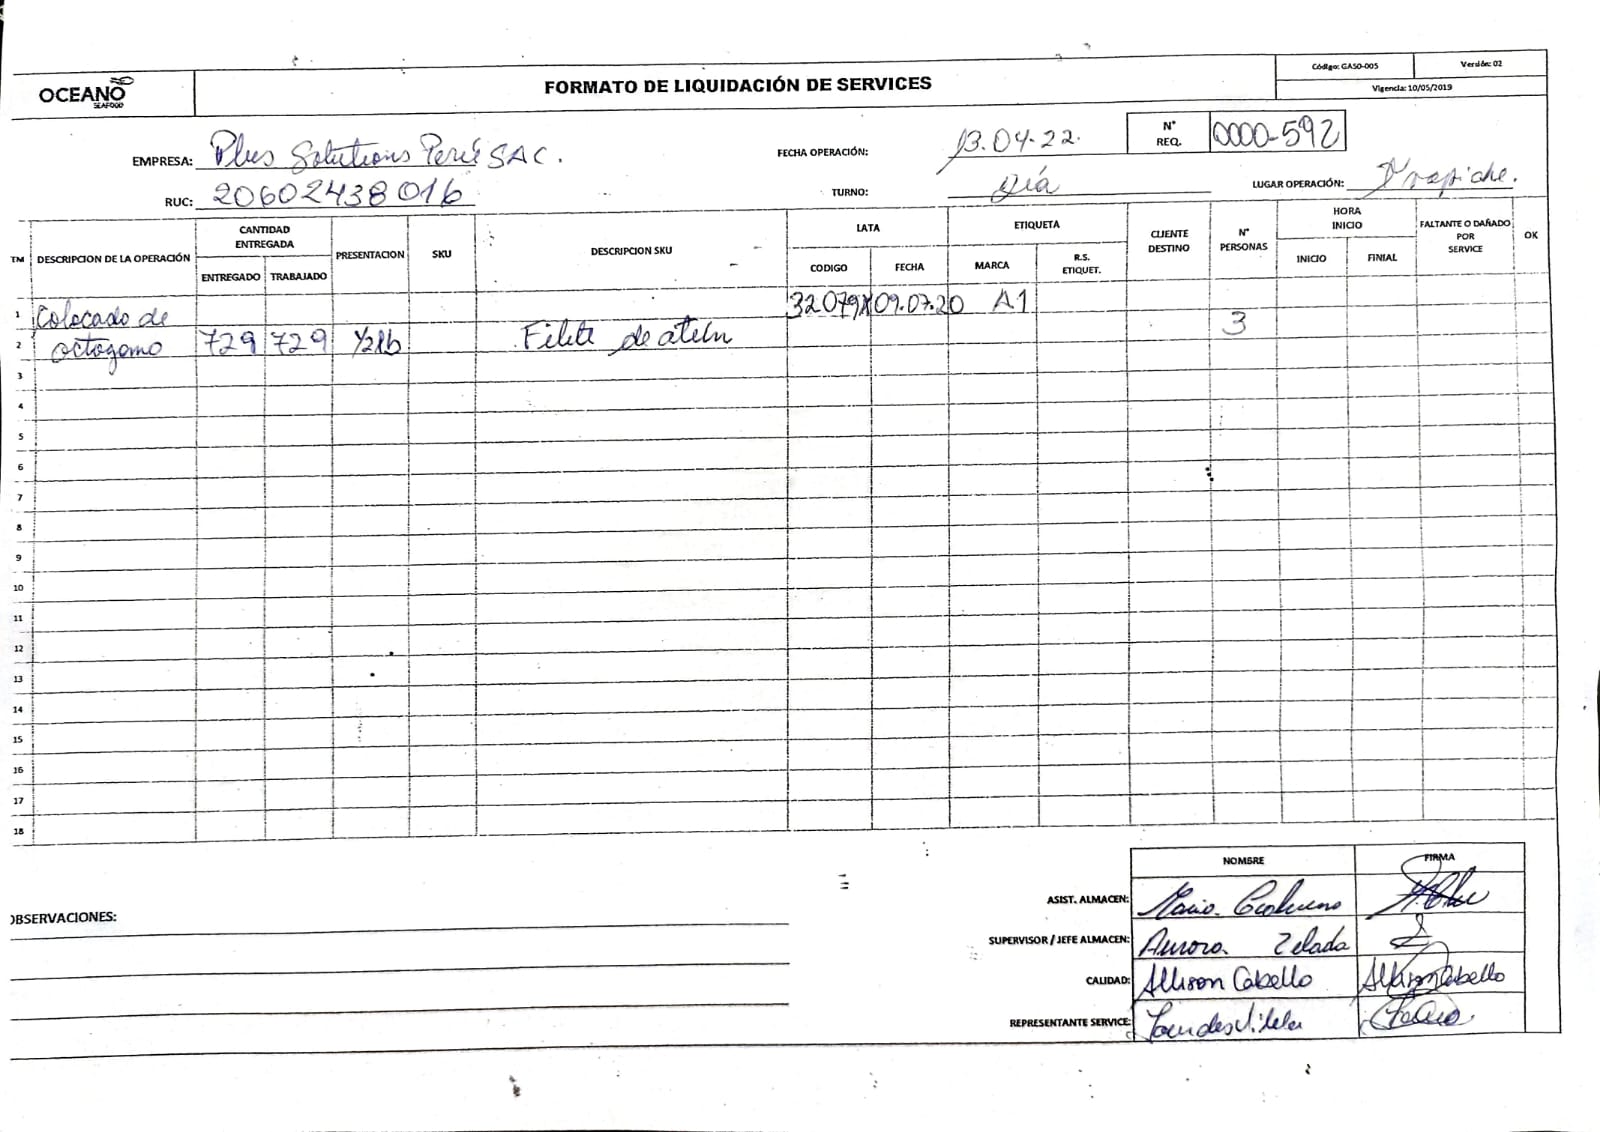 OCEANO
SEAFOOD
FORMATO DE LIQUIDACIÓN DE SERVICES
Código: GASO-005
Versión: 02
Vigencia: 10/05/2019
EMPRESA: Plus Solutions Perú SAC.
FECHA OPERACIÓN: 13.04.22.
N° REQ. 0000-592
RUC: 20602438016
TURNO: Día
LUGAR OPERACIÓN: Trapiche.
ITM DESCRIPCION DE LA OPERACIÓN CANTIDAD ENTREGADA PRESENTACION SKU DESCRIPCION SKU LATA ETIQUETA CLIENTE DESTINO N° PERSONAS HORA INICIO FALTANTE O DAÑADO POR SERVICE OK
ENTREGADO TRABAJADO CODIGO FECHA MARCA R.S. ETIQUET. INICIO FINIAL
1 Colocado de 32079X 09.07.20 A1
2 octogono 729 729 1/2lb Filete de atún 3
3
4
5
6
7
8
9
10
11
12
13
14
15
16
17
18
NOMBRE FIRMA
OBSERVACIONES:
ASIST. ALMACEN: Mario
SUPERVISOR / JEFE ALMACEN: Aurora Zelada
CALIDAD: Allison Cabello Allison Cabello
REPRESENTANTE SERVICE: Lourdes Vilela